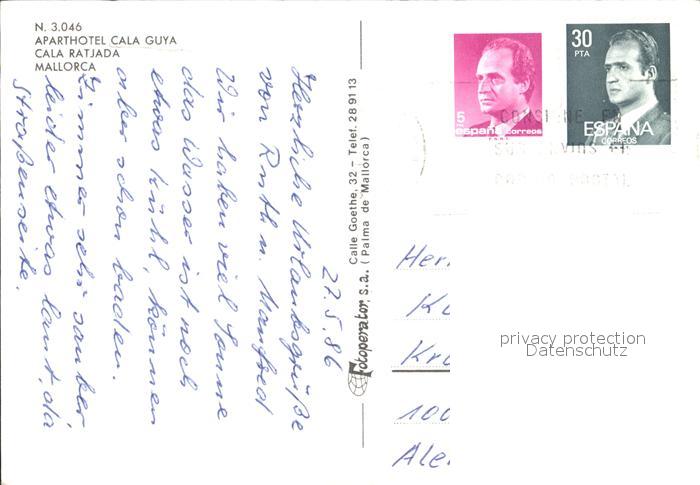 N. 3.046
APARTHOTEL CALA GUYA
CALA RATJADA
MALLORCA
27.5.86
Herzliche Urlaubsgrüße
von Ruth u. Manfred
Wir haben viel Sonne
das Wasser ist noch
etwas kühl, können
aber schon baden.
Zimmer sehr sauber
leider etwas laut, da
Straßenseite.
Fotoperator, s.a.
Calle Goethe, 32 – Telef. 28 91 13
(Palma de Mallorca)
5
españa correos
30
PTA
ESPAÑA
CORREOS
POSTAL
Her
Kr
100
Ale
privacy protection
Datenschutz